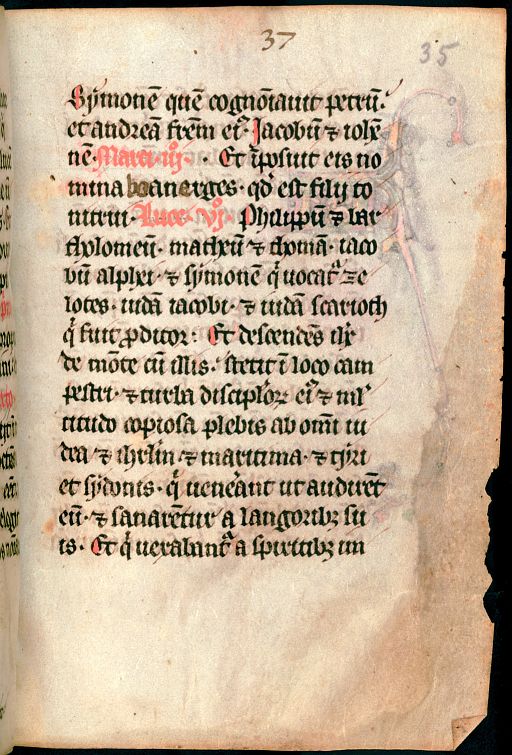 37
35
Symonē quē cognoīauit petrū·
et andreā frēm eiꝰ Jacobū ⁊ ioh̄
nē· Marci· iij· · Et īposuit eis no
mina boanerges· qđ est filij to
nitrui· Luce· vj· Philippū ⁊ bar
tholomeū· matheū ⁊ thomā· iaco
bū alphei· ⁊ symonē q̄ uocatᷣ ze
lotes· iudā iacobi· ⁊ iudā scarioth
q̄ fuit ꝓditor: Et descendēs
de mōte cū illis· stetit ī loco cam
pestri· ⁊ turba disciploꝝ eiꝰ ⁊ ml̓
titudo copiosa plebis ab omī iu
dea ⁊ ihrlm̄ ⁊ maritima· ⁊ tyri
et sydonis· q̄ uenerant ut audirēt
eū· ⁊ sanarētur a langoribꝫ su
is· Et q̄ uexabantᷣ a spiritibꝫ im